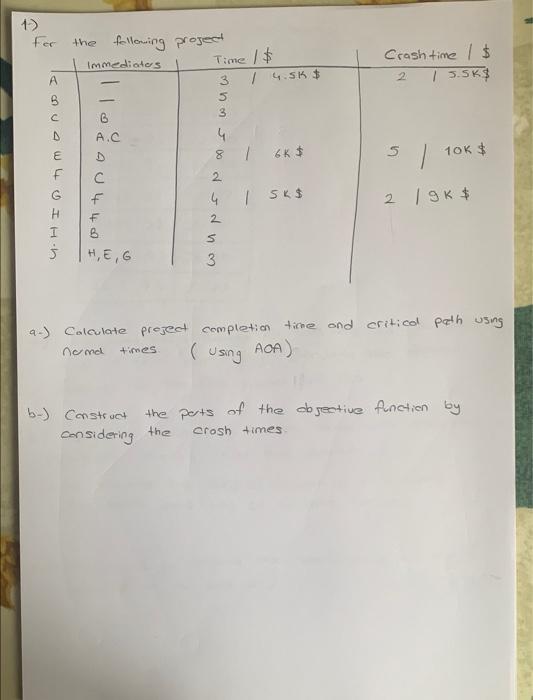 1-)
For the following project
Immediators Time / $ Crash time / $
A — 3 / 4.5K $ 2 / 5.5K $
B — 5
C B 3
D A.C 4
E D 8 / 6K $ 5 / 10K $
F C 2
G F 4 / 5K $ 2 / 9K $
H F 2
I B 5
j H, E, G 3
a-) Calculate project completion time and critical path using
normal times. ( Using AOA )
b-) Construct the parts of the objective function by
considering the crash times.